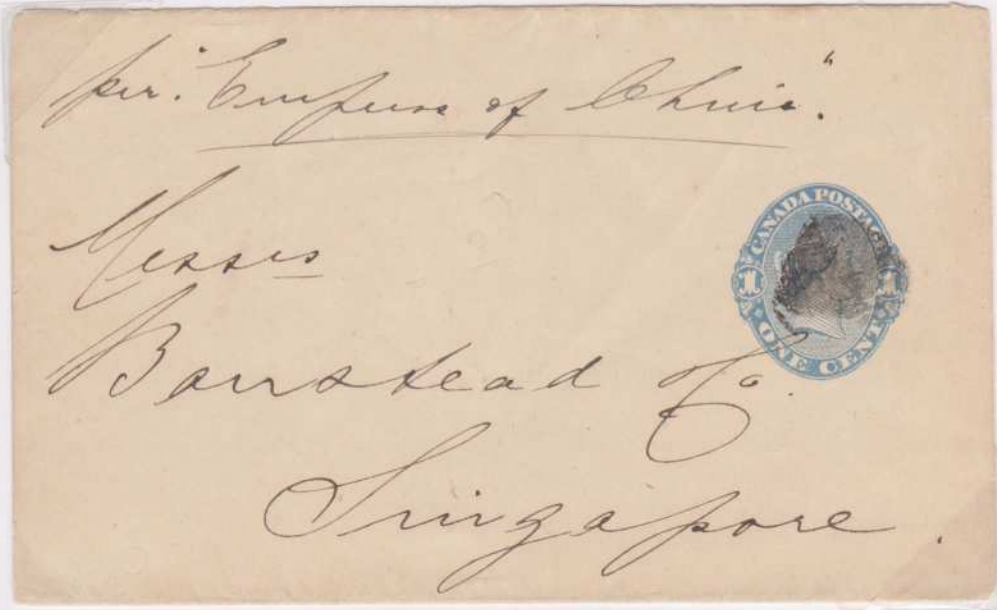 per. "Empress of China."
Messrs
Boustead & Co.
Singapore.
CANADA POSTAGE
1 1
ONE CENT